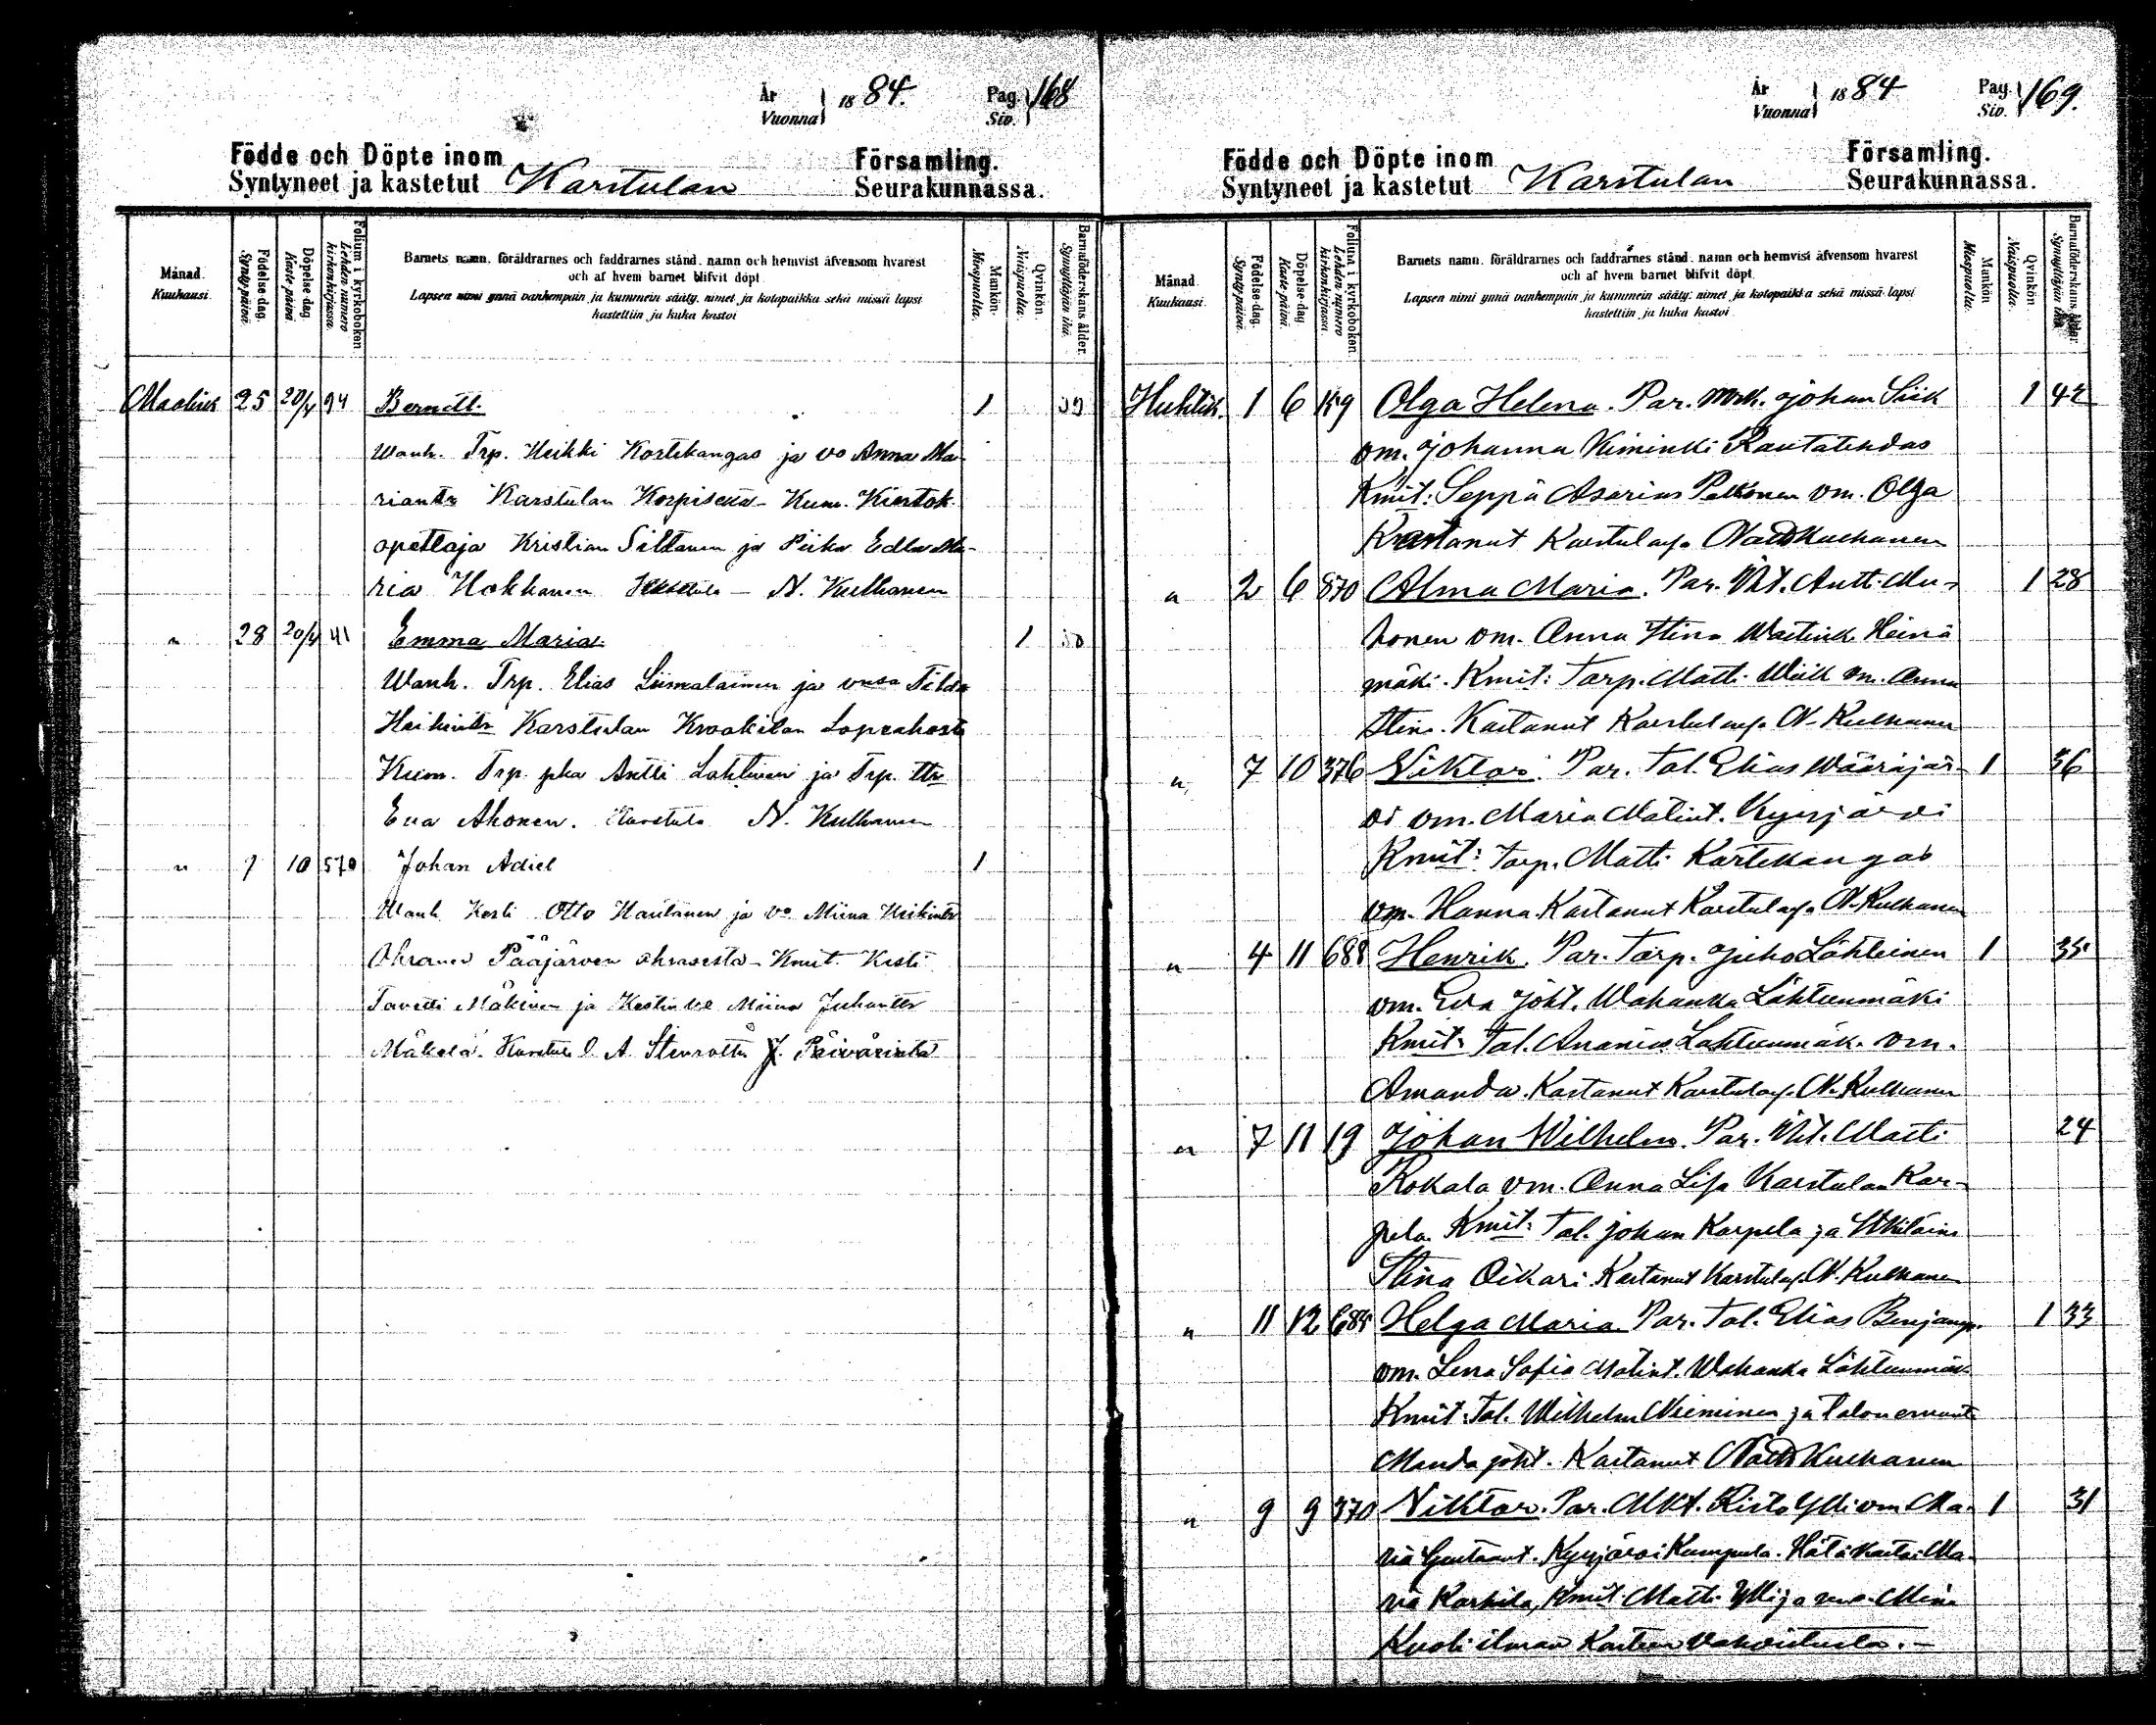 År Vuonna 1884. Pag. Siv. 168
Födde och Döpte inom Församling.
Syntyneet ja kastetut Karstulan Seurakunnassa.
Månad. Kuukausi.
Födelse-dag. Synty-päivä.
Döpelse-dag. Kaste-päivä.
Folium i kyrkoboken Lehden numero kirkonkirjassa.
Barnets namn, föräldrarnes och faddrarnes stånd, namn och hemvist äfvensom hvarest
och af hvem barnet blifvit döpt.
Lapsen nimi ynnä vanhempain ja kummein sääty, nimet ja kotopaikka sekä missä lapsi
kastettiin ja kuka kastoi
Mankön. Miespuolta.
Qvinkön. Naispuolta.
Barnaföderskans ålder. Synnyttäjän ikä.
Maalisk 25 20/4 94 Berndt. 1 39
Wanh. Trp. Heikki Kortekangas ja vo Anna Ma-
riantr Karstulan Korpisella - Kum. Kiertok.
opettaja Kristian Siltanen ja Piika Edla Ma-
ria Hokkanen - N. Kulhanen
" 28 20/4 41 Emma Maria. 1 30
Wanh. Trp. Elias Liimalainen ja vmsa Tilda
Heikintr Karstulan
Kum. Trp. pka Antti Lahtinen ja Trp. ttr
Eva Ahonen. Karstula N. Kulhanen
" 7 10 570 Johan Adiel 1
Wanh. Kesti Otto Hautanen ja vo Miina Heikintr
Pääjärven - Kmit. Kesti
Taveti Mäkinen ja Kestin vo Miina Juhantr
Mäkelä. Karstula J. Päivärinta
År Vuonna 1884 Pag. Siv. 169.
Födde och Döpte inom Församling.
Syntyneet ja kastetut Karstulan Seurakunnassa.
Månad. Kuukausi.
Födelse-dag. Synty-päivä.
Döpelse-dag. Kaste-päivä.
Folium i kyrkoboken Lehden numero kirkonkirjassa.
Barnets namn, föräldrarnes och faddrarnes stånd, namn och hemvist äfvensom hvarest
och af hvem barnet blifvit döpt.
Lapsen nimi ynnä vanhempain ja kummein sääty, nimet ja kotopaikka sekä missä lapsi
kastettiin ja kuka kastoi
Mankön Miespuolta.
Qvinkön Naispuolta.
Barnaföderskans ålder. Synnyttäjän ikä
Huhtik. 1 6 159 Olga Helena. Par. Mrk. Johan Siik 1 42
vm. Johanna Kiminki
Kmit: Seppä Asarias Pelkonen vm. Olga
Kastanut Karstulasa Kulhanen
" 2 6 870 Alma Maria. Par. Antti Mu- 1 28
honen vm. Anna Stina Heinä
mäki. Kmit: Torp. Matti Wiik vm. Anna
Stina. Kastanut Karstulasa N. Kulhanen
" 7 10 376 Viktor. Par. Tal. Elias Wääräjär- 1 36
vi vm. Maria Matint. Kyyjärvi
Kmit: Torp. Matti Kortekangas
vm. Hanna. Kastanut Karstulasa N. Kulhanen
" 4 11 688 Henrik. Par. Torp. Juho Lähteinen 1 35
vm. Eva Joht. Wahanka Lähteenmäki
Kmit: Tal. Ananias Lähteenmäk. vm.
Amanda. Kastanut Karstulasa. N. Kulhanen
" 7 11 19 Johan Wilhelm. Par. Matti 24
Kokala vm. Anna Lisa Karstulan Kar-
pela. Kmit: Tal. Johan Karpela ja
Stina Oikari. Kastanut Karstulasa. N. Kulhanen
" 11 12 685 Helga Maria. Par. Tal. Elias Benjamp. 1 33
vm. Lena Sofia Matint. Wahanka Lähteenmäk.
Kmit: Tal. Wilhelm Nieminen ja Talon emäntä
Manda Joht. Kastanut Kulhanen
" 9 9 370 Viktor. Par. Risto Ylli vm. Ma- 1 31
ria Kyyjärvi Kumpula. Hätäkastoi Ma-
ria Kmit: Matti Ylli ja Miina
Kuoli ilman Kasteen vahvistusta.-